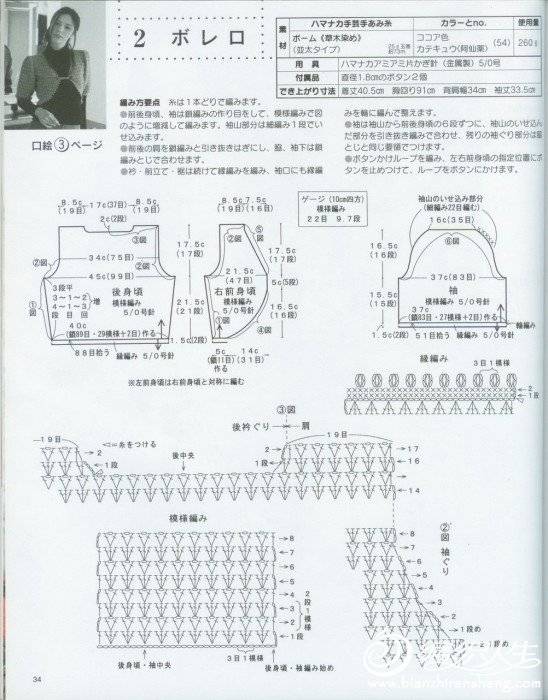 2 ボレロ
口絵③ページ
素材
ハマナカ手芸手あみ糸
カラーとno.
使用量
ポーム《草木染め》
(並太タイプ)
ココア色
カテキュウ(阿仙薬)
(54)
260g
用具
ハマナカアミアミ片かぎ針(金属製)5/0号
付属品
直径1.8cmのボタン2個
でき上がり寸法
着丈40.5cm 胸回り91cm 背肩幅34cm 袖丈33.5cm
編み方要点 糸は1本どりで編みます。
●前後身頃、袖は鎖編みの作り目をして、模様編みで図
のように増減して編みます。袖山部分は細編み1段でい
せ込みます。
●前後の肩を鎖編みと引き抜きはぎにし、脇、袖下は鎖
編みとじで合わせます。
●衿・前立て・裾は続けて縁編みを編み、袖口にも縁編
みを輪に編んで整えます。
●袖は袖山から前後身頃の6段ずつに、袖山のいせ込ん
だ部分を引き抜き編みで合わせ、残りの袖ぐり部分は
とじと同じ要領でつけます。
●ボタンかけループを編み、左右前身頃の指定位置に
タンを止めつけて、ループをボタンにかけます。
ゲージ(10cm四方)
模様編み
22目 9.7段
8.5c
(19目)
17c(37目)
8.5c
(19目)
2c(2段)
③図
34c(75目)
②図
②図
45c(99目)
後身頃
模様編み
5/0号針
3段平
3~1~2
4~1~3
段目回
増
①図
40c
(鎖89目・29模様+2目)作る
88目拾う
縁編み 5/0号針
17.5c
(17段)
21.5c
(21段)
1.5c(2段)
8.5c
(19目)
7.5c
(16目)
②図
⑤図
21.5c
(47目)
右前身頃
模様編み
5/0号針
①図
④図
17.5c
(17段)
5c(5段)
16.5c
(16段)
5c
(鎖11目)
作る
14c
(31目)
※左前身頃は右前身頃と対称に編む
袖山のいせ込み部分
(細編み22目編む)
16c(35目)
⑥図
37c(83目)
袖
模様編み 5/0号針
37c
(鎖83目・27模様+2目)作る
51目拾う
縁編み 5/0号針
輪編み
16.5c
(16段)
15.5c
(15段)
1.5c(2段)
縁編み
3目1模様
③図
後衿ぐり
肩
19目
=糸をつける
2
1段
後中央
19目
2
1段
17
16
14
模様編み
8
7
6
5
4
3
2
1段
2段1模様
後身頃・袖中央
3目1模様
後身頃・袖編み始め
②図 袖ぐり
8
7
6
5
4
3
2
1段め
34
www.bianzhirensheng.com